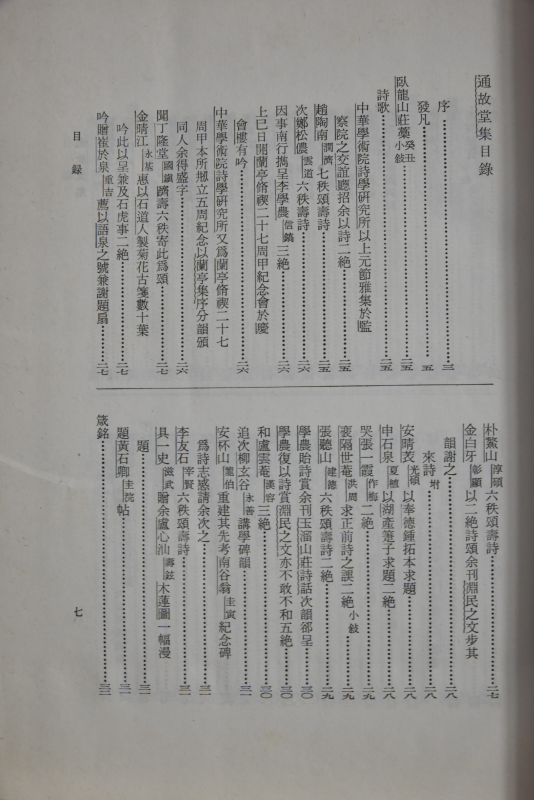 通故堂集目錄
序……三
發凡……五
臥龍山莊藁 癸丑 小敍……二五
詩歌……二五
中華學術院詩學硏究所以上元節雅集於監
察院之交誼廳招余以詩二絶……二五
趙陶南 潤濟 七秩頌壽詩……二五
次鄭松儂 雲道 六秩壽詩……二六
因事南行擕呈李學農 信鎬 三絶……二六
上巳日開蘭亭脩禊二十七周甲紀念會於慶
會樓有吟……二六
中華學術院詩學硏究所又爲蘭亭脩禊二十七
周甲本所刱立五周紀念以蘭亭集序分韻頒
同人余得盛字……二六
聞丁隆堂 國鎭 躋壽六秩寄此爲頌……二七
金晴江 永基 惠以石道人製菊花古箋數十葉
吟此以呈兼及石虎事二絶……二七
吟贈崔於泉 重吉 舊以語泉之號兼謝題扇……二七
目錄
朴鰲山 淳碩 六秩頌壽詩……二七
金白牙 彰顯 以二絶詩頌余刊淵民之文步其
韻謝之……二八
來詩 坿……二八
安晴芠 光碩 以奉德鍾拓本求題……二八
申石泉 夏植 以湖產蓴子求題二絶……二八
哭張一霞 作梅 二絶……二九
裵隔世菴 洪周 求正前詩之誤二絶 小敍……二九
張聽山 建德 六秩頌壽詩二絶……二九
學農貽詩賞余刊玉溜山莊詩話次韻郤呈……三〇
學農復以詩賞淵民之文亦不敢不和五絶……三〇
和盧雲菴 漢容 三絶……三〇
追次柳玄谷 永善 講學碑韻……三一
安杯山 龍伯 重建其先考南谷翁 圭寅 紀念碑
爲詩志感請余次之……三一
李友石 宰賢 六秩頌壽詩……三一
具一史 滋武 贈余盧心汕 壽鉉 木蓮圖一幅漫
題……三一
題黃石卿 圭院 帖……三一
箴銘……三二
七